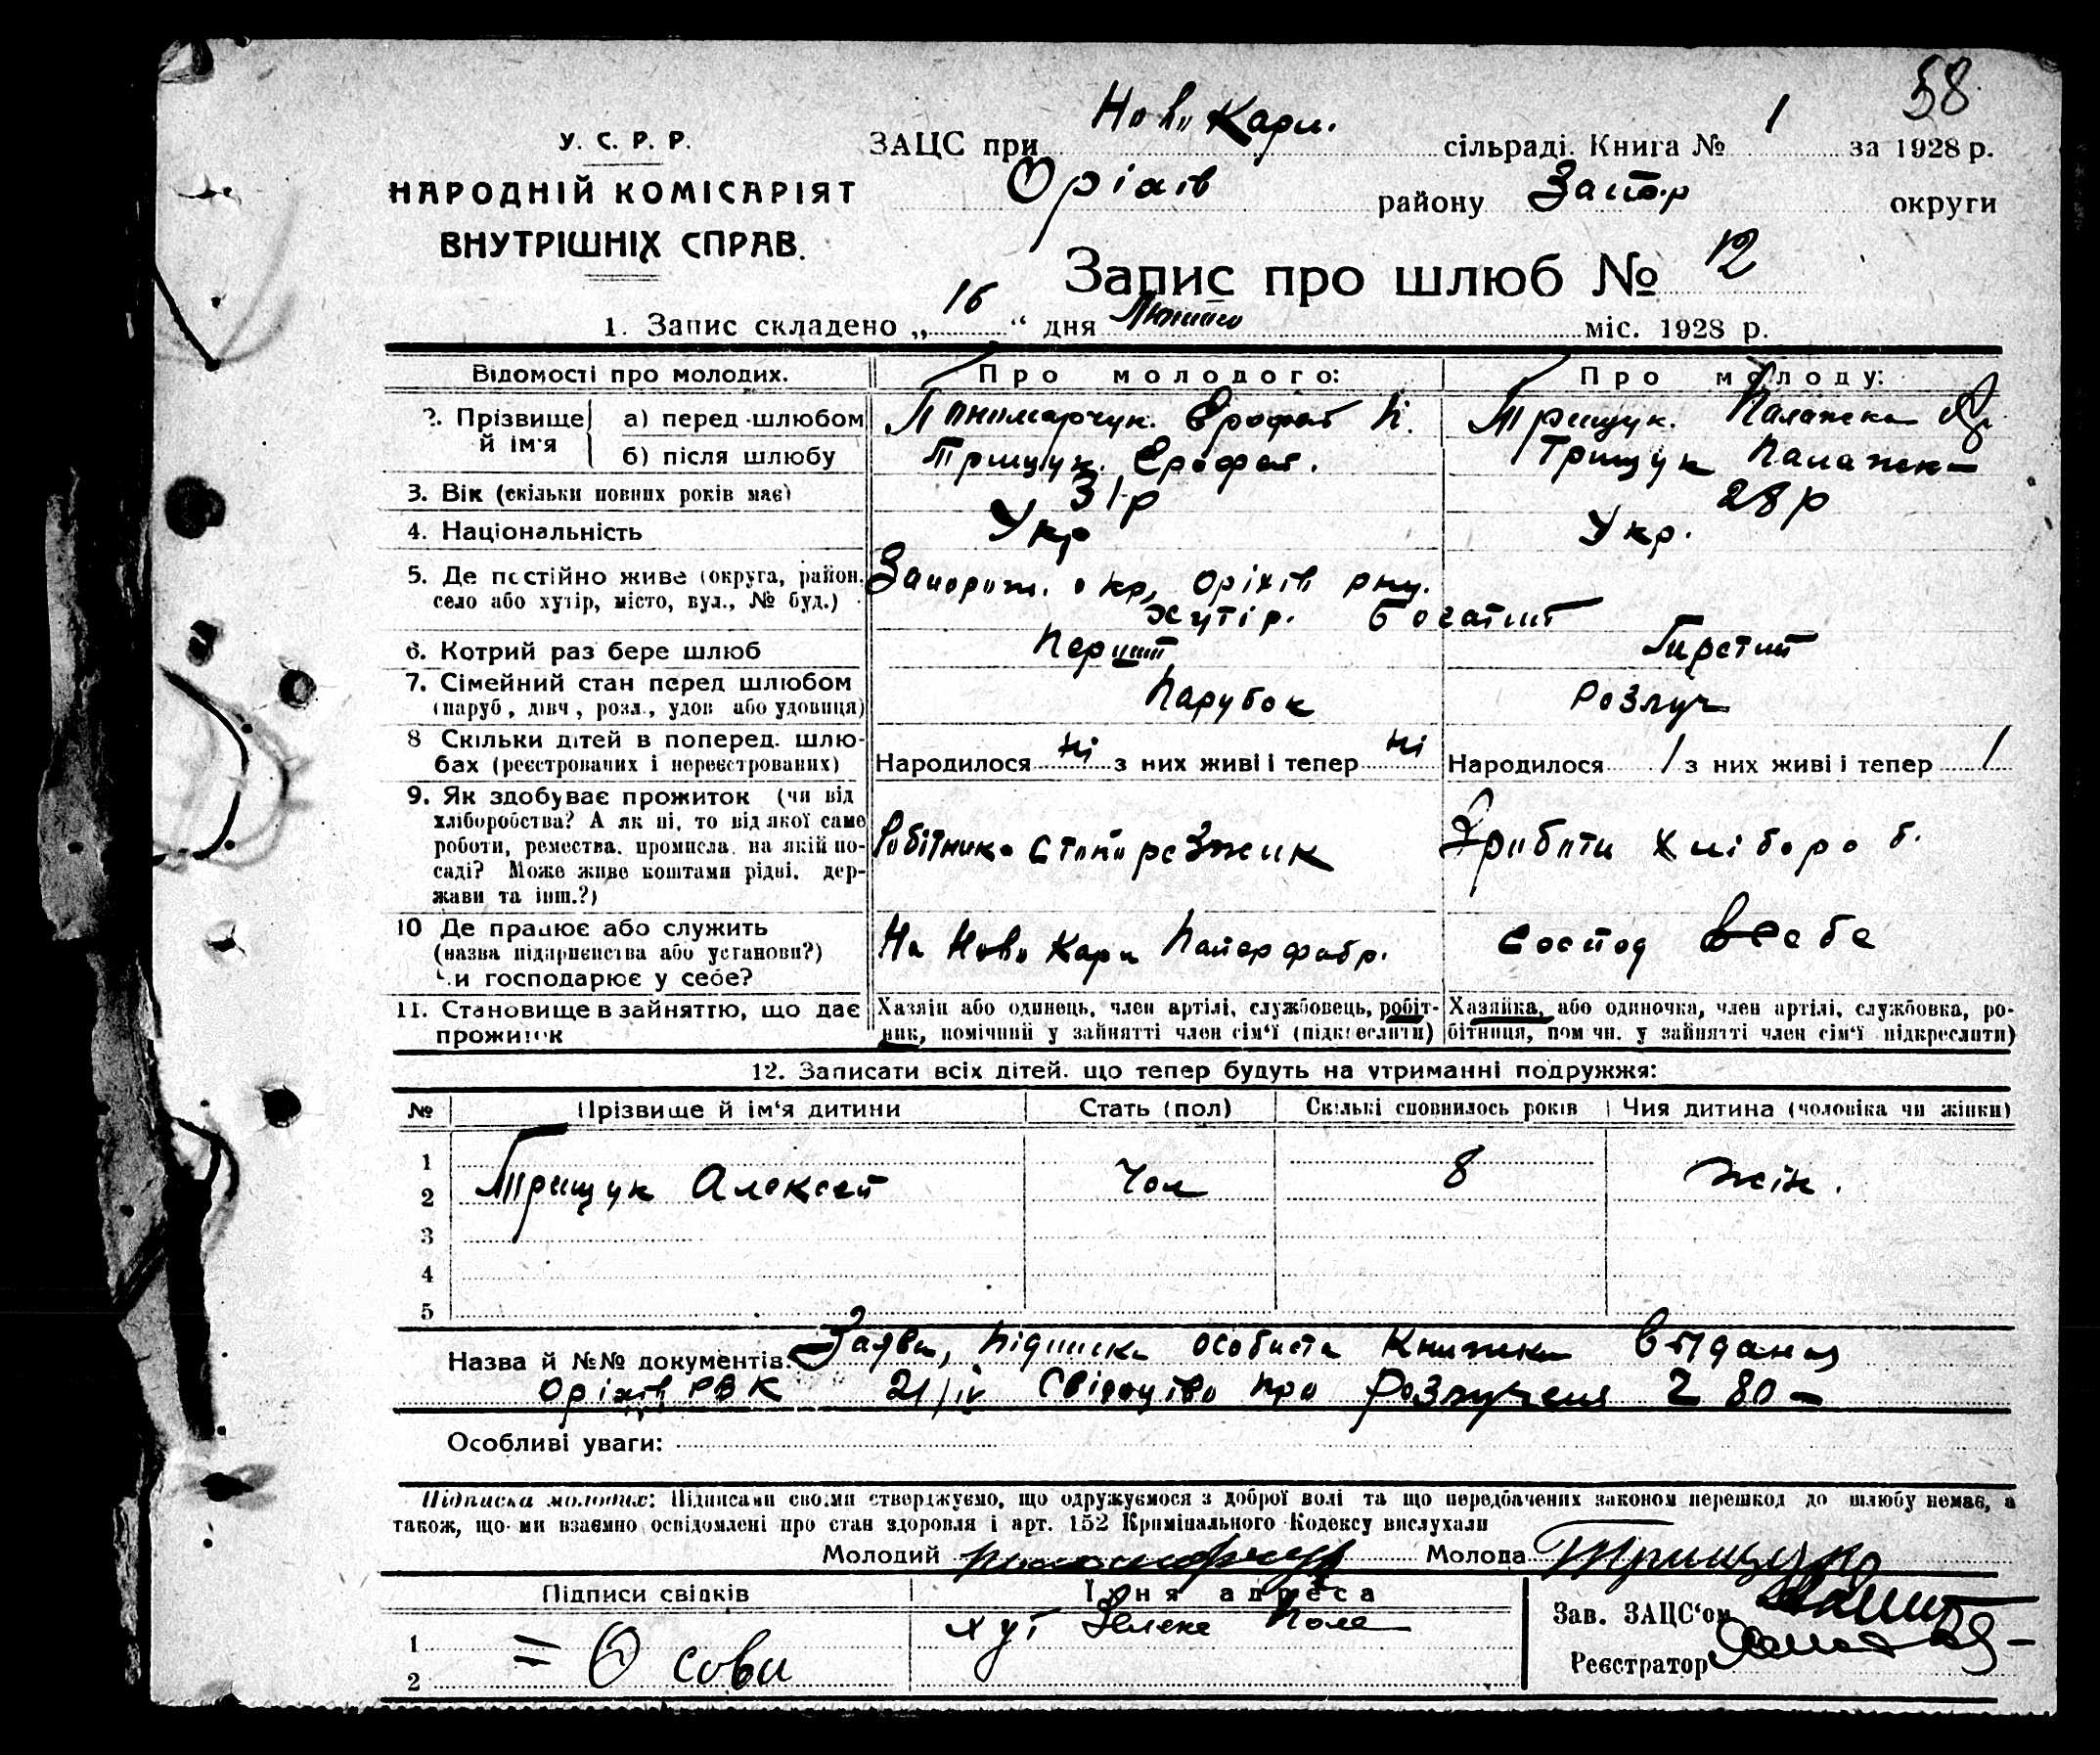 58
У. С. Р. Р.
НАРОДНІЙ КОМІСАРІЯТ
ВНУТРІШНІХ СПРАВ.
ЗАЦС при Ново Карл. сільраді. Книга № 1 за 1928 р.
Оріхів району Запор округи
Запис про шлюб № 12
1. Запис складено „16“ дня Лютого міс. 1928 р.
Відомості про молодих. Про молодого: Про молоду:
2. Прізвище й ім'я
а) перед шлюбом Пономарчук. Ерофей П. Трищук. Палажка
б) після шлюбу Трищук. Ерофей. Трищук Палажк
3. Вік (скільки повних років має) 31 р 28 р
4. Національність Укр Укр.
5. Де постійно живе (округа, район, Запорож. окр, Оріхів
село або хутір, місто, вул., № буд.) хутір. Богатий
6. Котрий раз бере шлюб Перший
7. Сімейний стан перед шлюбом Парубок Розлуч
(паруб., дівч., розл., удов або удовиця)
8 Скільки дітей в поперед. шлю-
бах (реєстрованих і нереєстрованих) Народилося ні з них живі і тепер ні Народилося 1 з них живі і тепер 1
9. Як здобуває прожиток (чи від
хліборобства? А як ні, то від якої саме
роботи, ремества, промисла, на якій по- Робітник
саді? Може живе коштами рідні, дер-
жави та інш.?)
10 Де працює або служить
(назва підприємства або установи?) На Ново Карл Папер фабр. Господ в себе
Чи господарює у себе?
11. Становище в зайняттю, що дає Хазяїн або одинець, член артілі, службовець, робіт- Хазяйка, або одиночка, член артілі, службовка, ро-
прожиток ник, помічний у зайнятті член сім'ї (підкреслити) бітниця, пом чн. у зайнятті член сім'ї підкреслити)
12. Записати всіх дітей, що тепер будуть на утриманні подружжя:
№ Прізвище й ім'я дитини Стать (пол) Скількі сповнилось років Чия дитина (чоловіка чи жінки)
1
2 Трищук Алексей Чол 8 жін.
3
4
5
Назва й №№ документів: Заява, Підписка особиста Книжка
Оріхів РВК 21/IV Свідоцтво про Розлученя 280
Особливі уваги:
Підписка молодих: Підписами своїми стверджуємо, що одружуємося з доброї волі та що передбачених законом перешкод до шлюбу немає, а
також, що ми взаємно освідомлені про стан здоровля і арт. 152 Кримінального Кодексу вислухали
Молодий Молода Трищук
Підписи свідків Їхня адреса
1 хут Зелене Поле
2
Зав. ЗАЦС'ом
Реєстратор